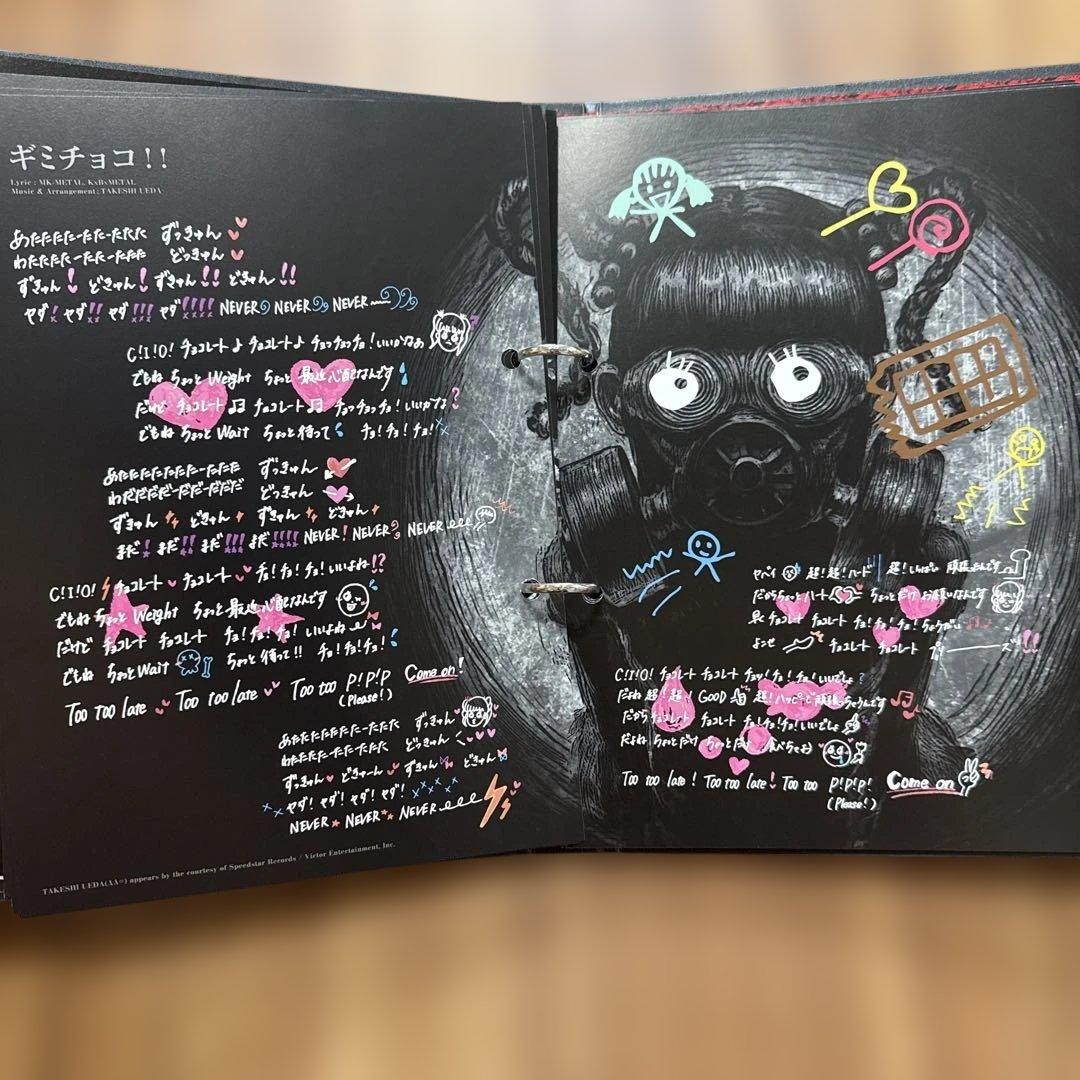 ギミチョコ！！
Lyric : MK-METAL, KxBxMETAL
Music & Arrangement : TAKESHI UEDA
あたたたたーたたーたたた ずっきゅん
わたたたたーたたーたたた どっきゅん
ずきゅん! どきゅん! ずきゅん!! どきゅん!!
ヤダ! ヤダ!! ヤダ!!! ヤダ!!!! NEVER NEVER NEVER
C!I!O! チョコレート♪ チョコレート♪ チョッチョッチョ! いいかなぁ
でもね ちょっと Weight ちょっと 最近心配なんです
だけど チョコレート チョコレート チョッチョッチョ! いいかな?
でもね ちょっと Wait ちょっと 待って チョ! チョ! チョ!
あたたたたたたたーたたた ずっきゅん
わだだだだーだだーだだだ どっきゅん
ずきゅん どきゅん ずきゅん どきゅん
まだ! まだ!! まだ!!! まだ!!!! NEVER! NEVER NEVER
C!I!O! チョコレート チョコレート チョ! チョ! チョ! いいよね!?
でもね ちょっと Weight ちょっと 最近心配なんです
だけど チョコレート チョコレート チョ! チョ! チョ! いいよね
でもね ちょっと Wait ちょっと 待って!! チョ! チョ! チョ!
Too Too late Too too late Too too P! P! P (Please!) Come on!
あたたたたたたたーたたたた ずっきゅん
わたたたたーたたーたたた どっきゅん
ずきゅん どきゅーん ずきゅん どきゅん
ヤダ! ヤダ! ヤダ! ヤダ!
NEVER NEVER NEVER
TAKESHI UEDA(AA=) appears by the courtesy of Speedstar Records / Victor Entertainment, Inc.
ヤバイ 超! 超! ハード 超! いっぱい 頑張ったんです
だからちょっと ハート ちょっとだけ お願いなんです
早く チョコレート チョコレート チョ! チョ! ちょうだい
よこせ チョコレート チョコレート プリーーーズ!!
C!I!O! チョコレート チョコレート チョ! チョ! チョ! いいでしょ?
だよね 超! 超! GOOD 超! ハッピーで 頑張っちゃうんです
だから チョコレート チョコレート チョ! チョ! チョ! いいでしょ
だよね ちょっとだけ ちょっとだけ
Too too late! Too too late! Too too P! P! P! (Please!) Come on